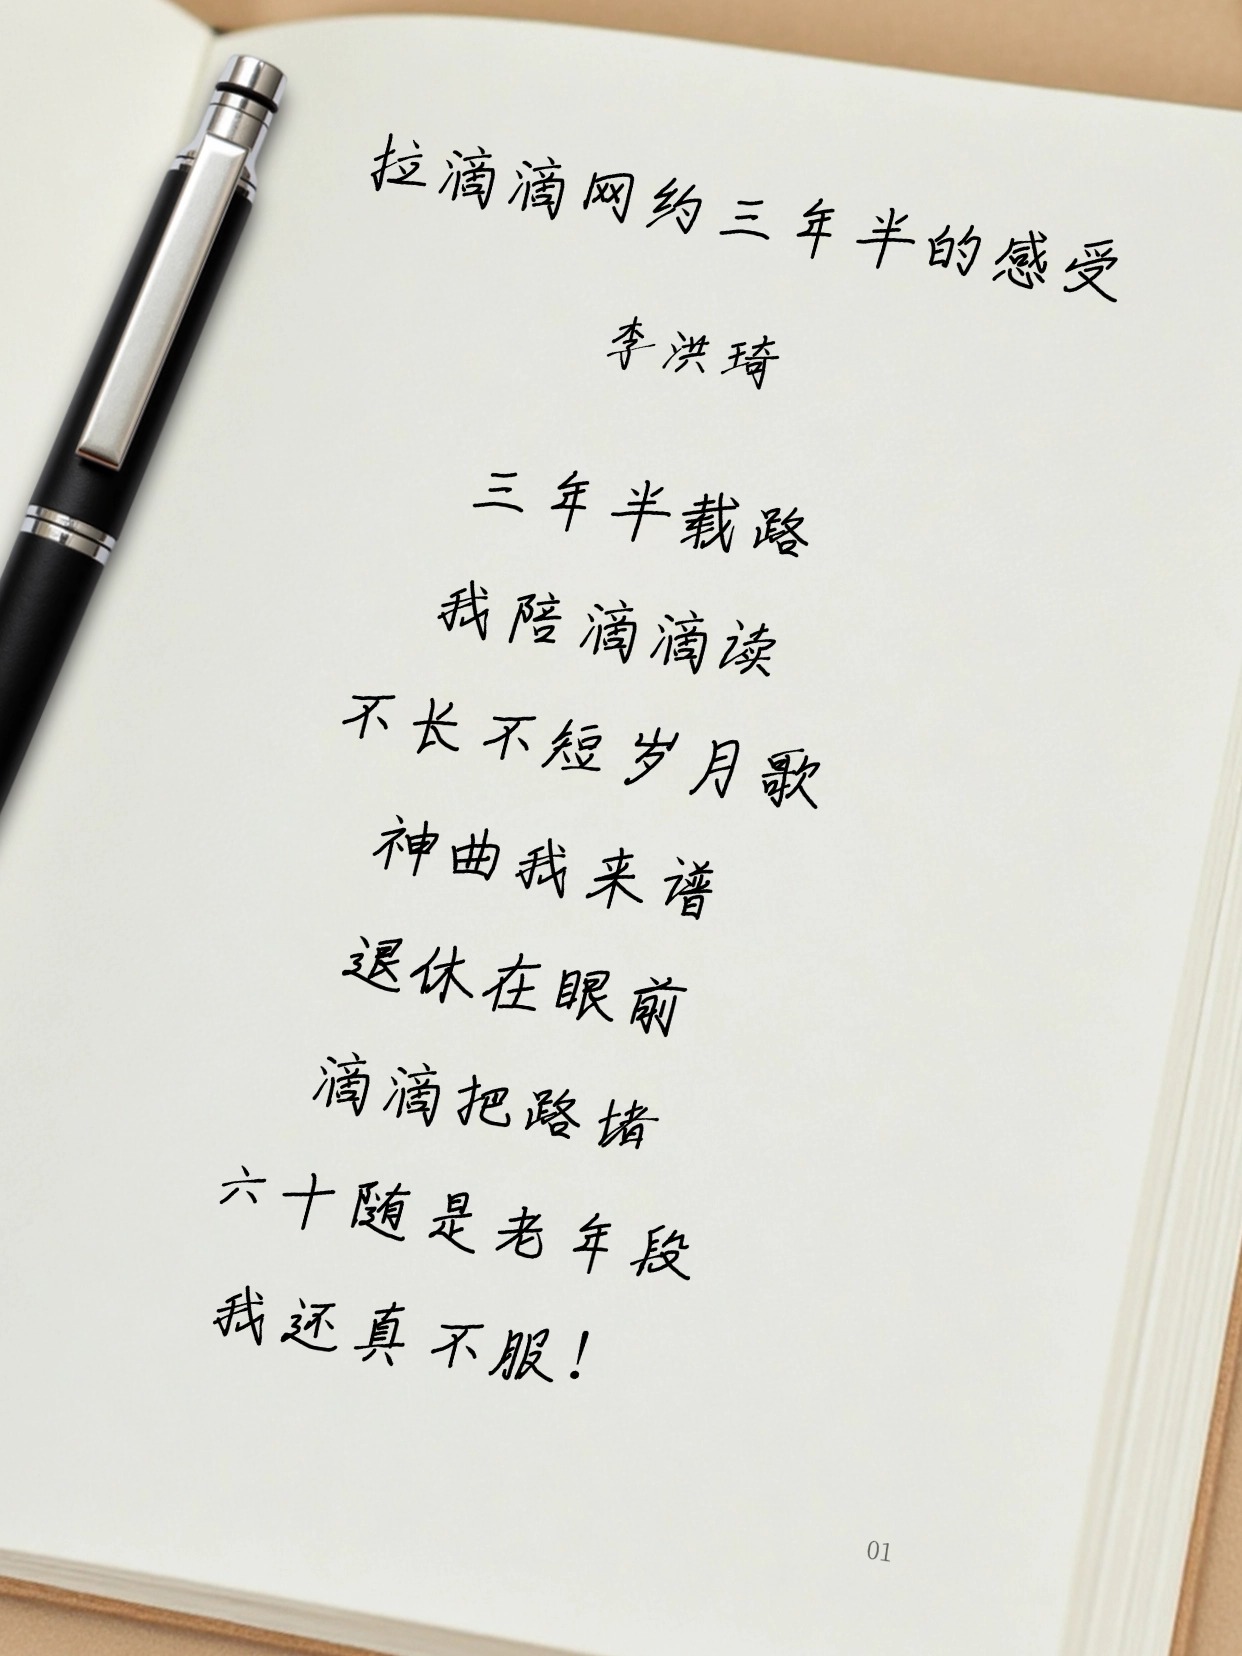 拉滴滴网约三年半的感受
李洪琦
三年半载路
我陪滴滴读
不长不短岁月歌
神曲我来谱
退休在眼前
滴滴把路堵
六十随是老年段
我还真不服！
01